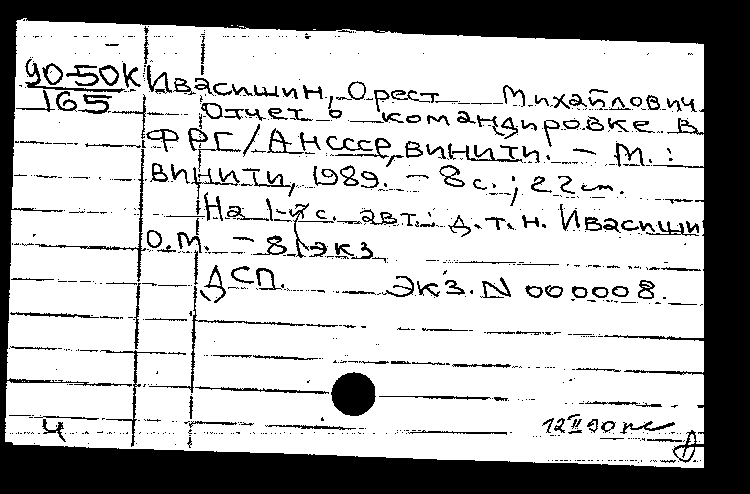 90-50К Ивасишин, Орест Михайлович.
165
Отчет о командировке в
ФРГ / АН СССР, ВИНИТИ. – М. :
ВИНИТИ, 1989. – 8 с. ; 22 см.
На 1-й с. авт.: д.т.н. Ивасишин
О.М. – 81 экз
ДСП. Экз. N 000008.
Ч
12 II 90